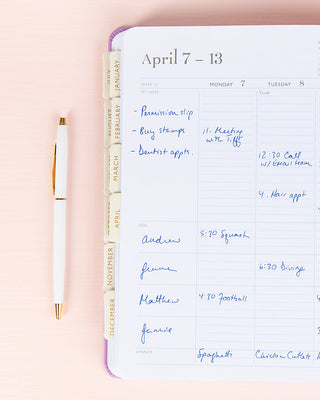 April 7 – 13
MONDAY 7
TUESDAY 8
MY WEEK
- Permission slip
- Buy stamps
- Dentist appts.
11 - Meeting
with Tiff
12:30 Call
w/ Email team
4 - Hair appt
KIDS
Andrew
5:30 Squash
6:30 Diving
Matthew
4:30 Football
Jamie
DINNER
Spaghetti
Chicken Cutlets
JULY
JANUARY
AUGUST
FEBRUARY
MARCH
APRIL
NOVEMBER
DECEMBER